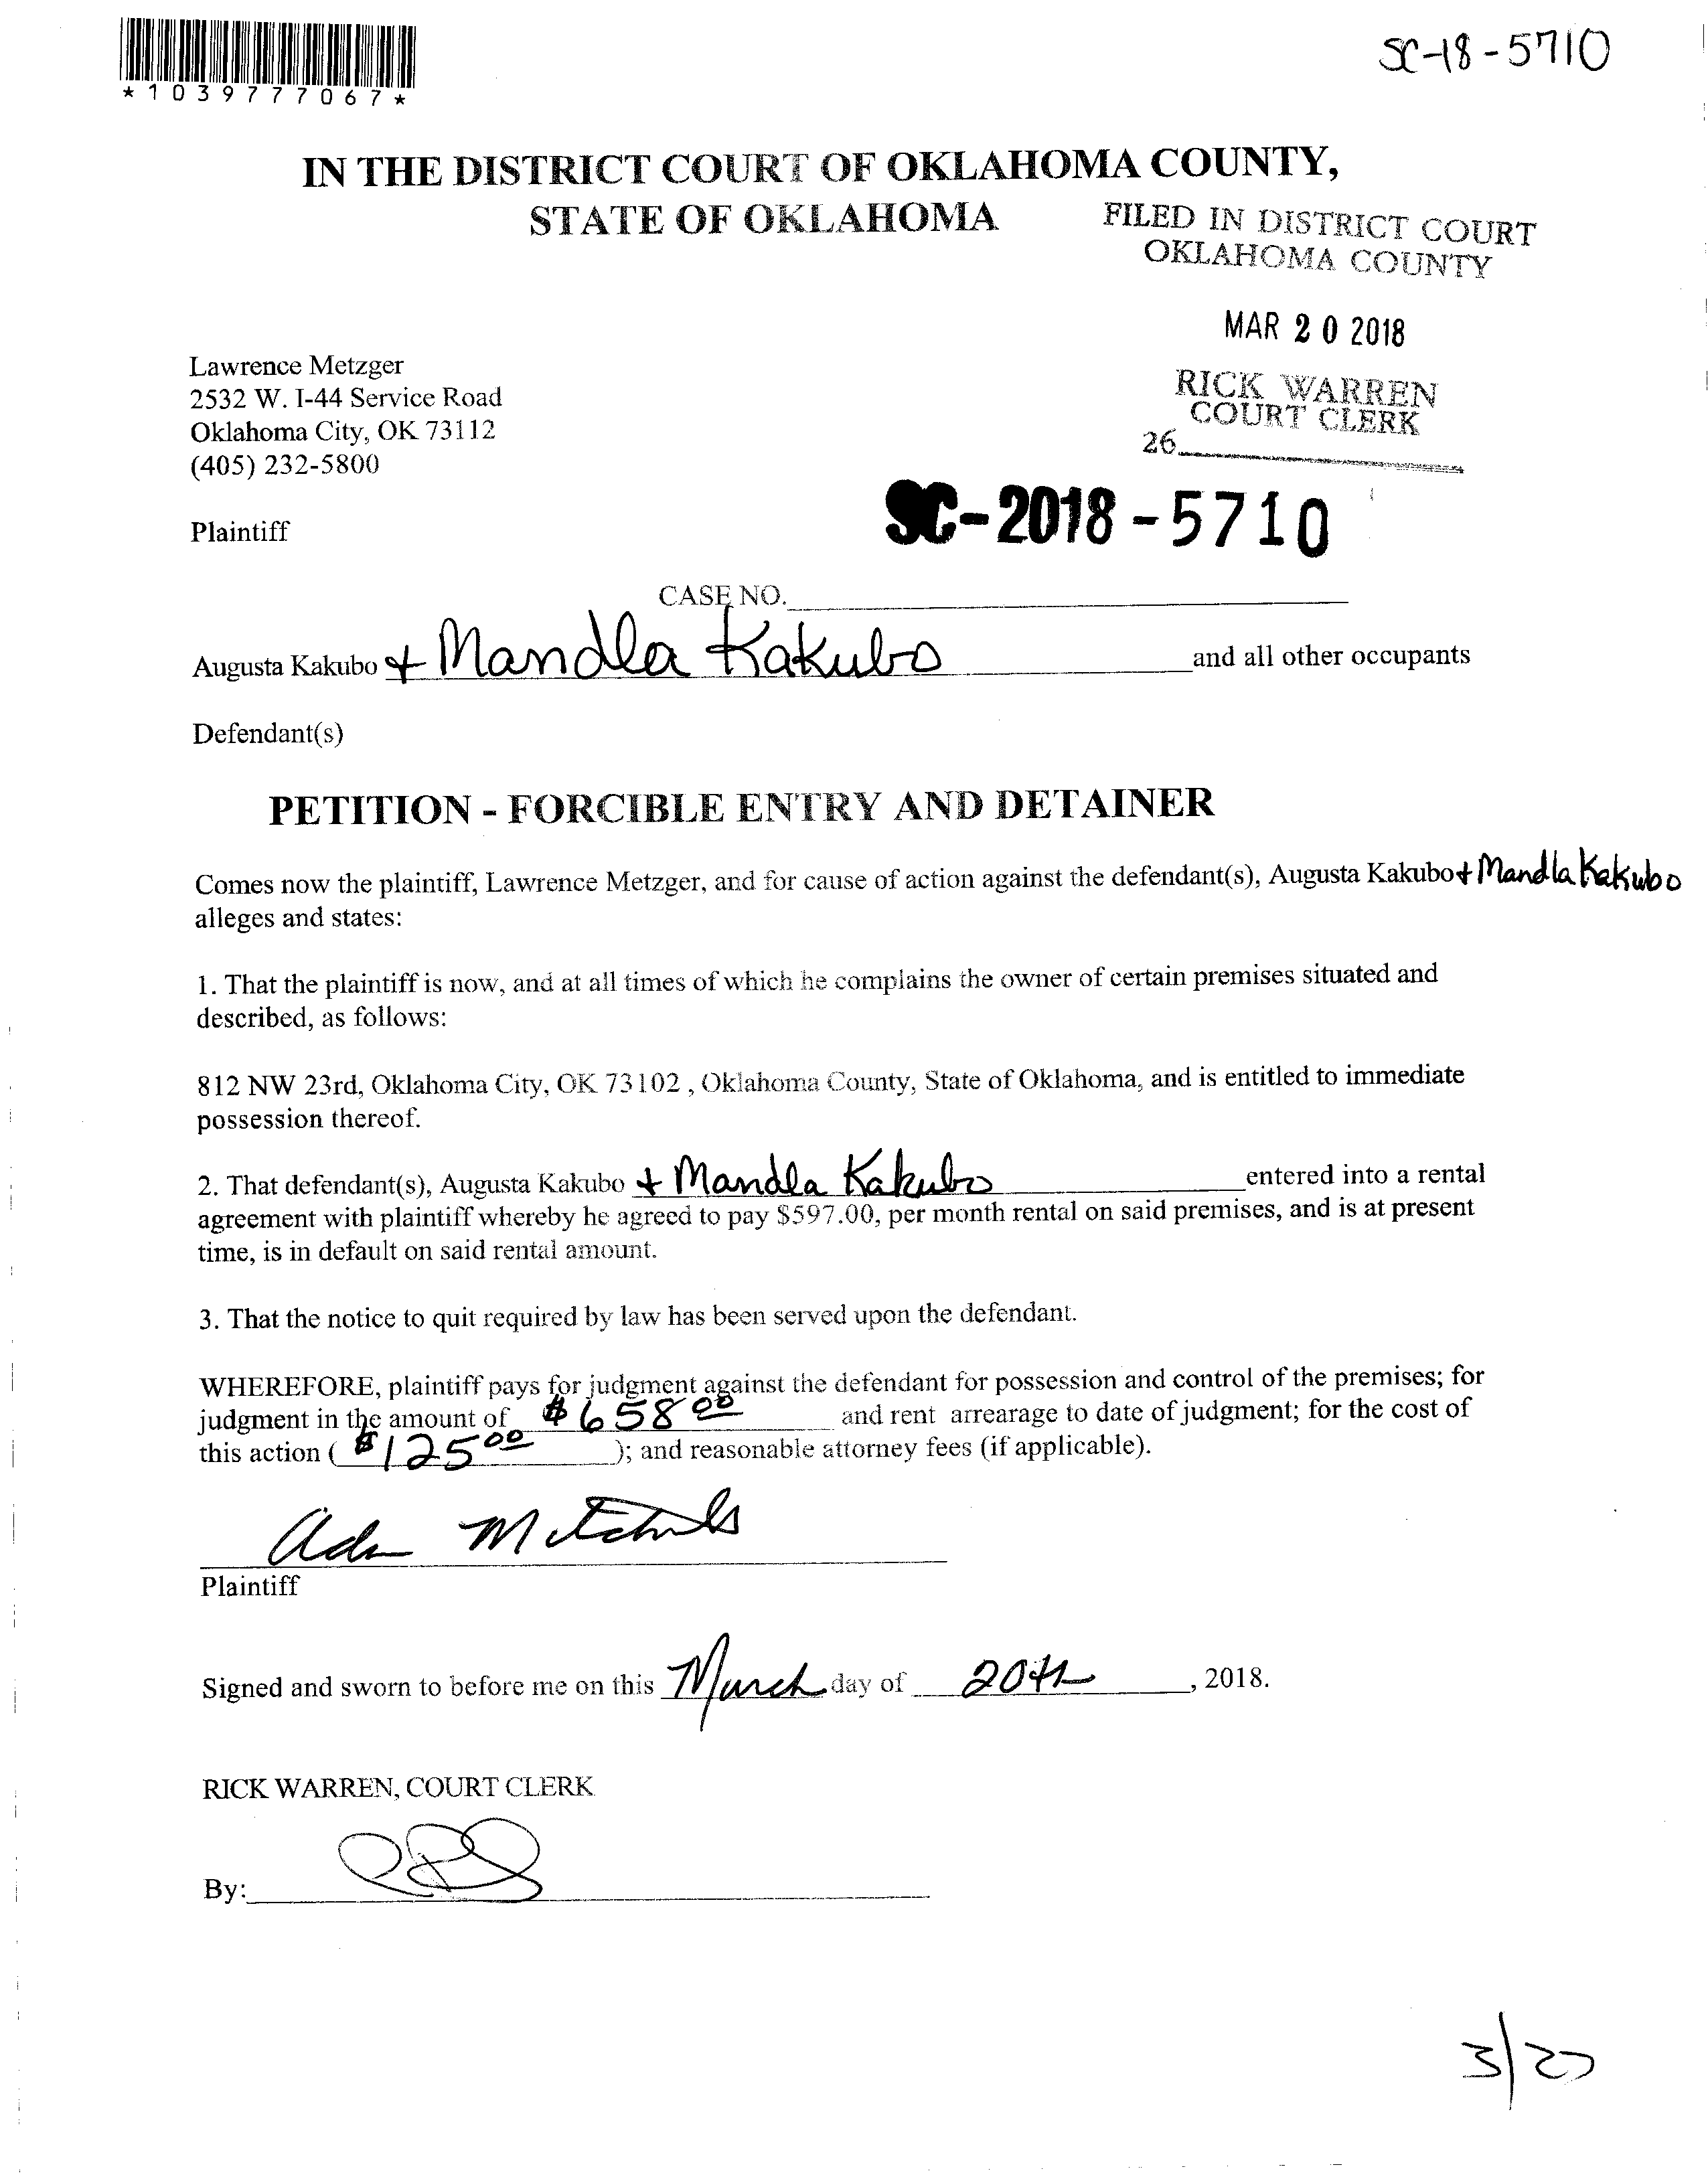 *1039777067*
SC-18-5710
IN THE DISTRICT COURT OF OKLAHOMA COUNTY,
STATE OF OKLAHOMA
FILED IN DISTRICT COURT
OKLAHOMA COUNTY
MAR 20 2018
RICK WARREN
COURT CLERK
26
Lawrence Metzger
2532 W. I-44 Service Road
Oklahoma City, OK 73112
(405) 232-5800
Plaintiff
SC-2018-5710
CASE NO.
Augusta Kakubo + Mandla Kakubo and all other occupants
Defendant(s)
PETITION - FORCIBLE ENTRY AND DETAINER
Comes now the plaintiff, Lawrence Metzger, and for cause of action against the defendant(s), Augusta Kakubo + Mandla Kakubo
alleges and states:
1. That the plaintiff is now, and at all times of which he complains the owner of certain premises situated and
described, as follows:
812 NW 23rd, Oklahoma City, OK 73102 , Oklahoma County, State of Oklahoma, and is entitled to immediate
possession thereof.
2. That defendant(s), Augusta Kakubo + Mandla Kakubo entered into a rental
agreement with plaintiff whereby he agreed to pay $597.00, per month rental on said premises, and is at present
time, is in default on said rental amount.
3. That the notice to quit required by law has been served upon the defendant.
WHEREFORE, plaintiff pays for judgment against the defendant for possession and control of the premises; for
judgment in the amount of $658 00 and rent arrearage to date of judgment; for the cost of
this action ( $125 00 ); and reasonable attorney fees (if applicable).
Plaintiff
Signed and sworn to before me on this March day of 20th , 2018.
RICK WARREN, COURT CLERK
By:
3/27